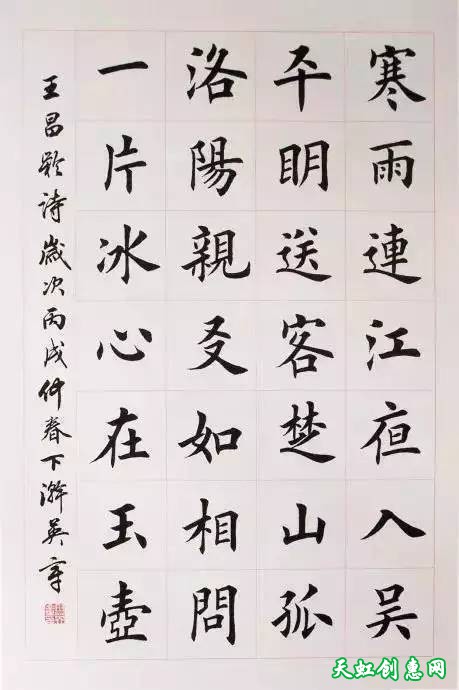 寒雨連江夜入吳
平明送客楚山孤
洛陽親友如相問
一片冰心在玉壺
王昌齡詩歲次丙戌仲春下澣英章
天虹创惠网